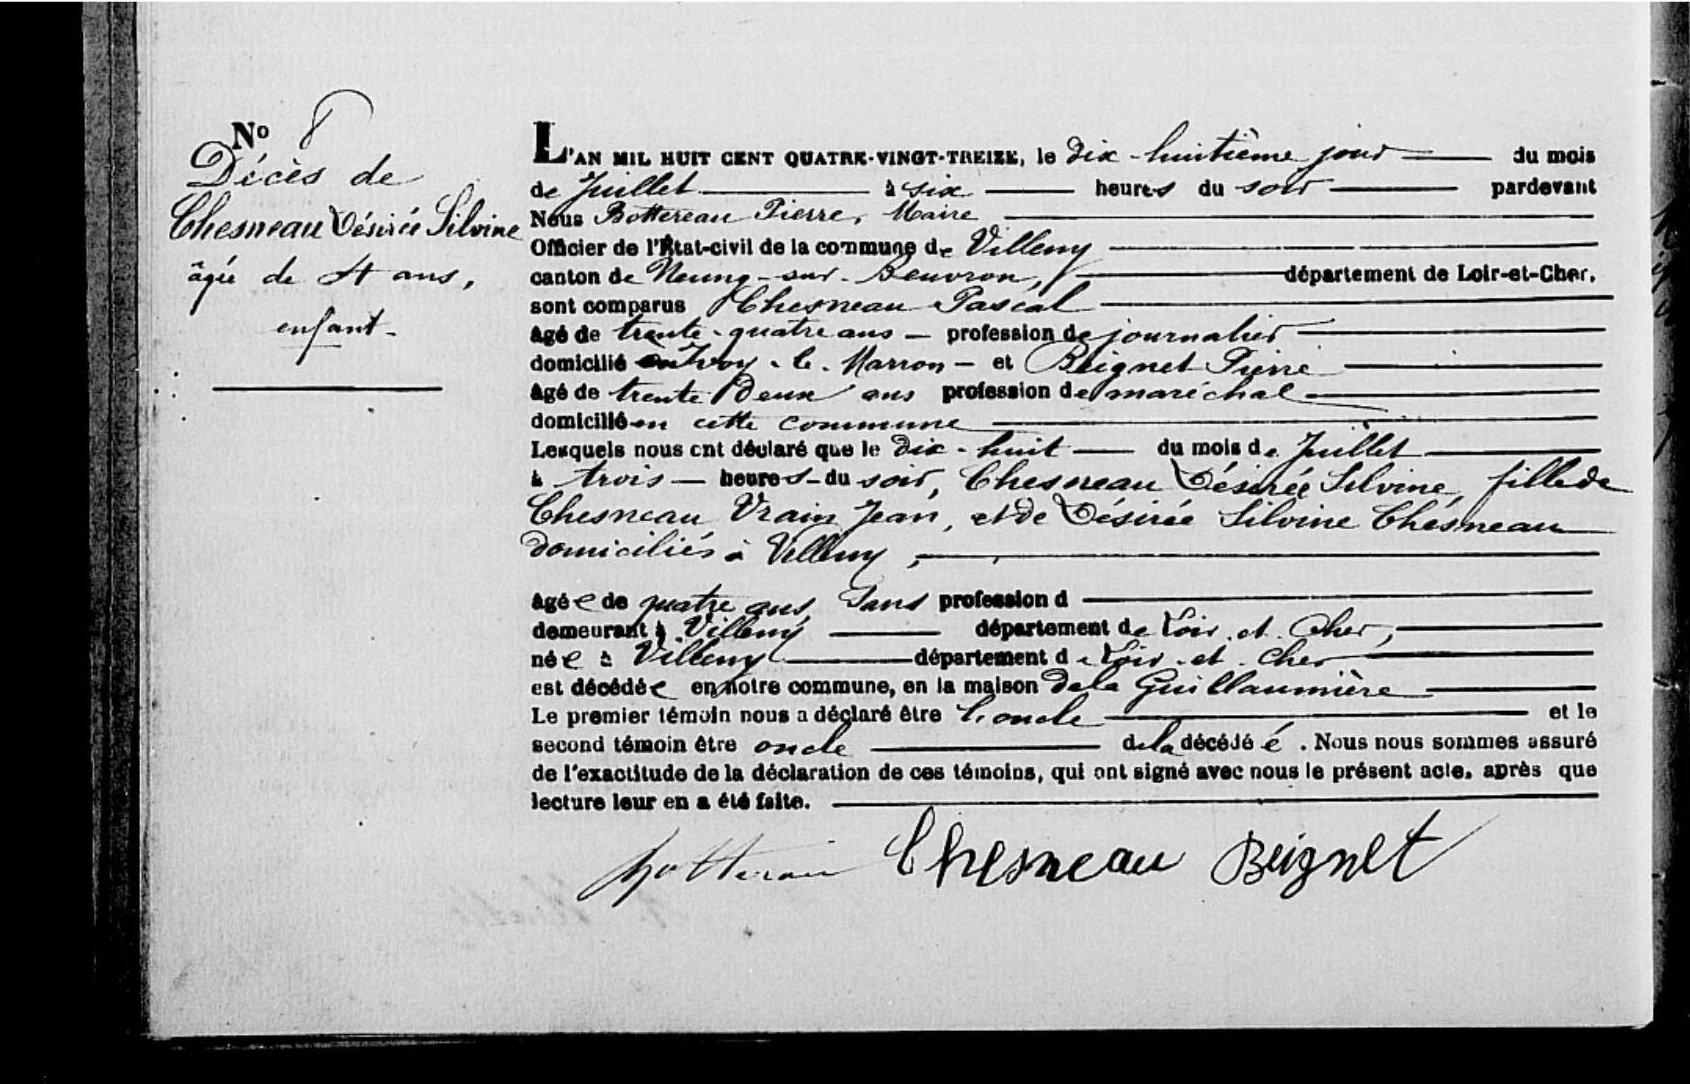 No 8
Décès de
Chesneau Désirée Silvine
âgée de 4 ans,
enfant
L'AN MIL HUIT CENT QUATRE-VINGT-TREIZE, le dix-huitième jour du mois
de Juillet à six heures du soir pardevant
Nous Bottereau Pierre, Maire
Officier de l'État-civil de la commune de Villeny
canton de Neung-sur-Beuvron, département de Loir-et-Cher.
sont comparus Chesneau Pascal
âgé de trente-quatre ans profession de journalier
domicilié Yvoy-le-Marron et Beignet Pierre
âgé de trente deux ans profession de maréchal
domicilié en cette commune
Lesquels nous ont déclaré que le dix-huit du mois de Juillet
à trois heures du soir, Chesneau Désirée Silvine, fille de
Chesneau Vrain Jean, et de Désirée Silvine Chesneau
domiciliés à Villeny,
âgée de quatre ans, Sans profession d
demeurant à Villeny département de Loir-et-Cher,
née à Villeny département de Loir-et-Cher
est décédée en notre commune, en la maison de la Guillaumière
Le premier témoin nous a déclaré être l'oncle et le
second témoin être oncle de la décédée. Nous nous sommes assuré
de l'exactitude de la déclaration de ces témoins, qui ont signé avec nous le présent acte, après que
lecture leur en a été faite.
Chesneau Beignet